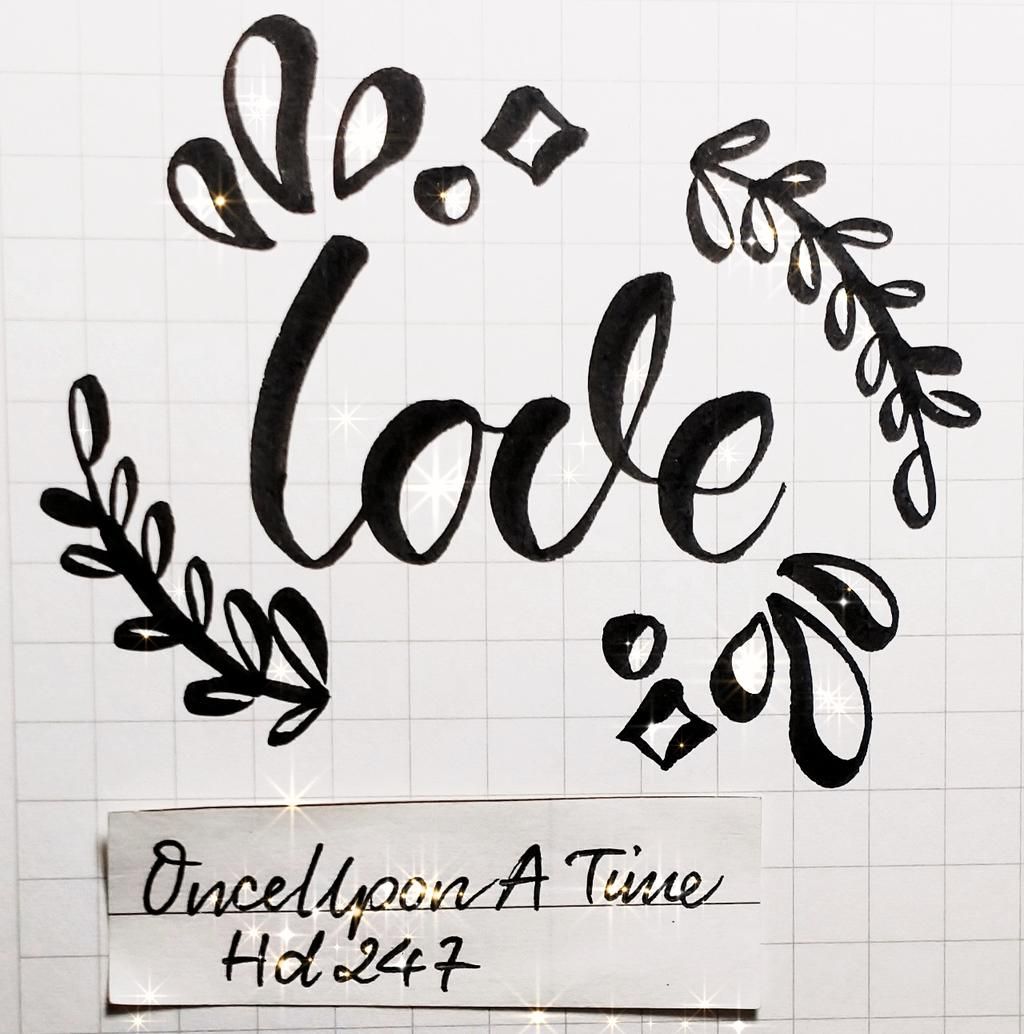 love
OnceUpon A Time
Hd 247